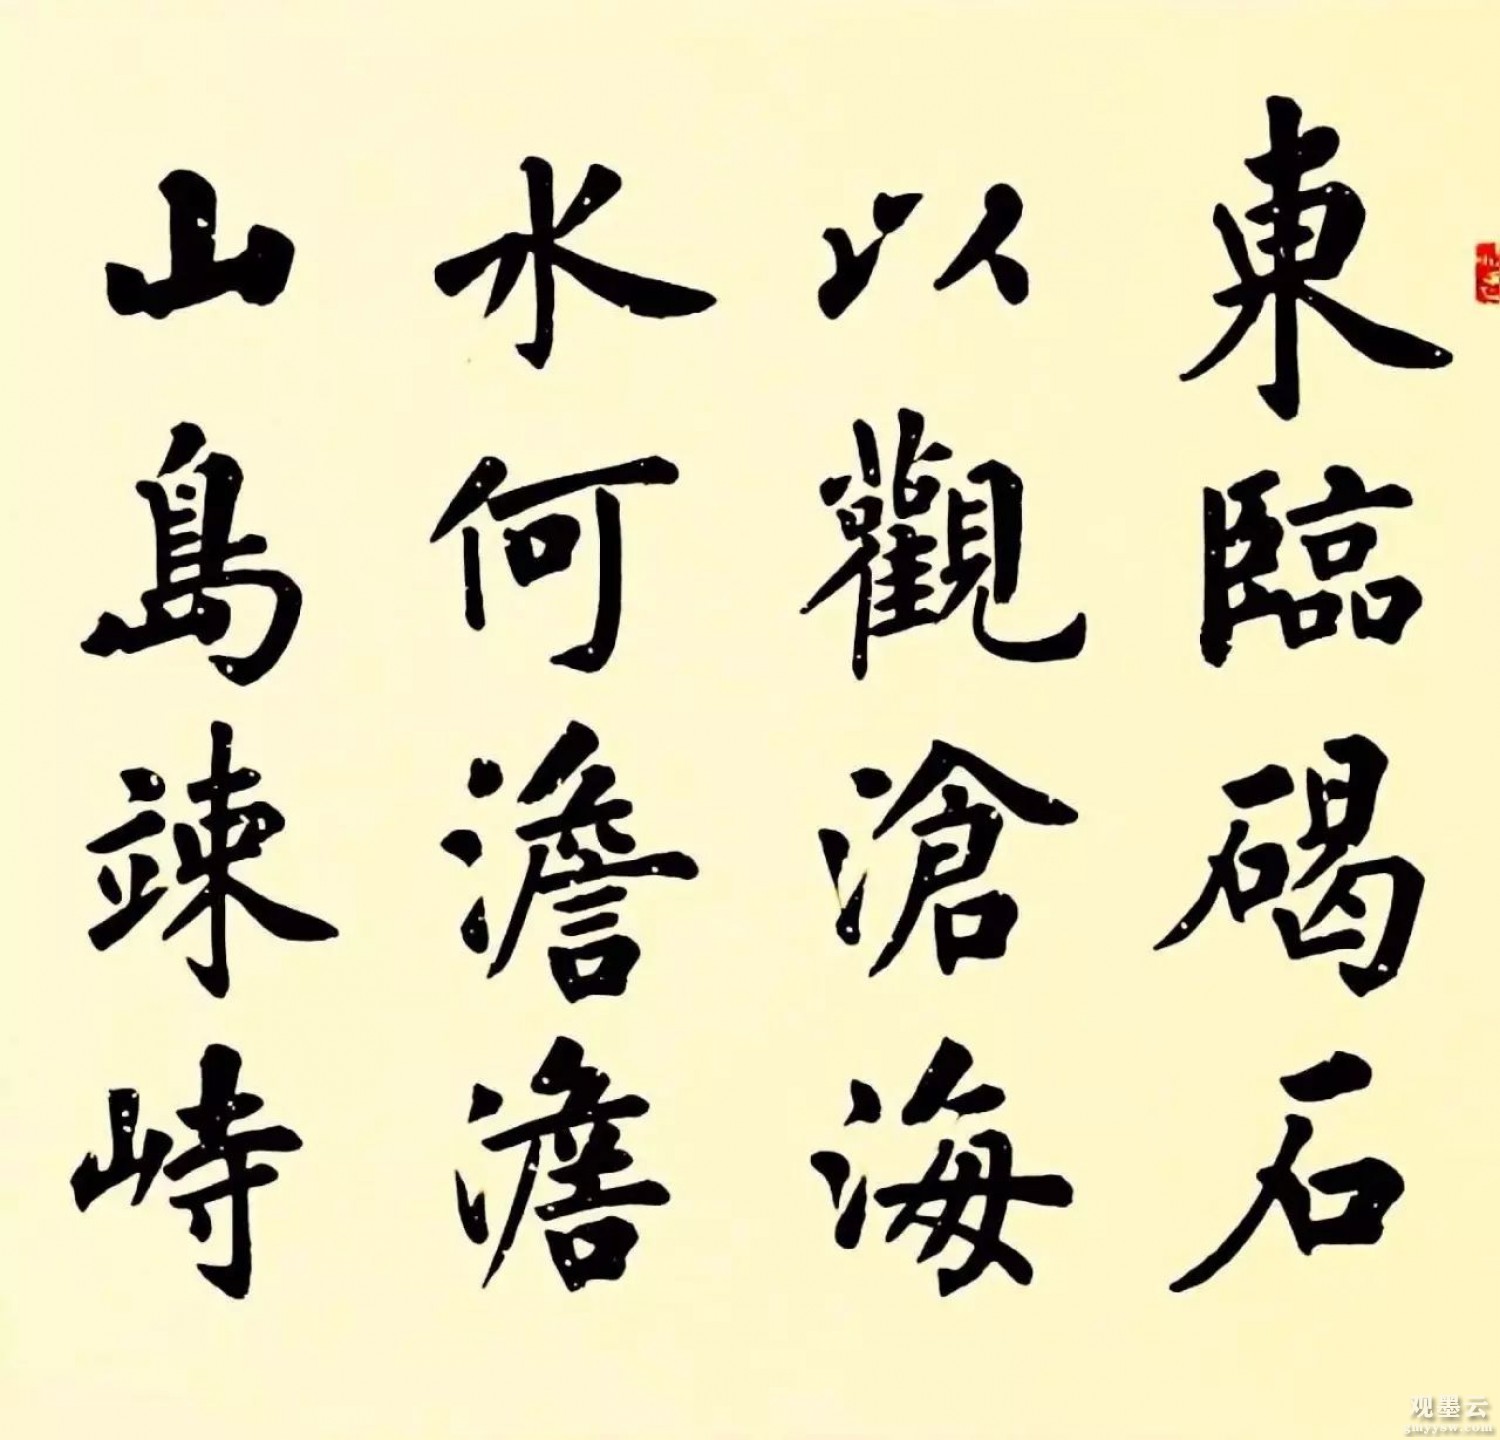 東臨碣石
以觀滄海
水何澹澹
山島竦峙
观墨云
gmyysw.com